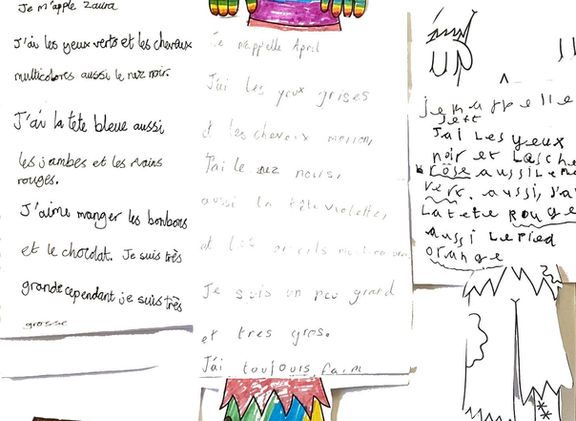 Je m'apple Zaura
J'ais les yeux verts et les chevaux
multicolores aussi le nez noir.
J'ai la tête bleue aussi
les jambes et les mains
rouges.
J'aime manger les bonbons
et le chocolat. Je suis très
grande cependant je suis très
grosse
Je m'appelle April
J'ai les yeux grises
et les cheveux marron,
J'ai le nez noirs,
aussi la tête violette,
et les
Je suis un peu grand
et tres gros.
J'ai toujours faim
je m'appelle
Jeff
J'ai Les yeux
noir et Lasche
röse aussi Le ne
vert. aussi, J'ai
La tete rouge
aussi Le pied
orange